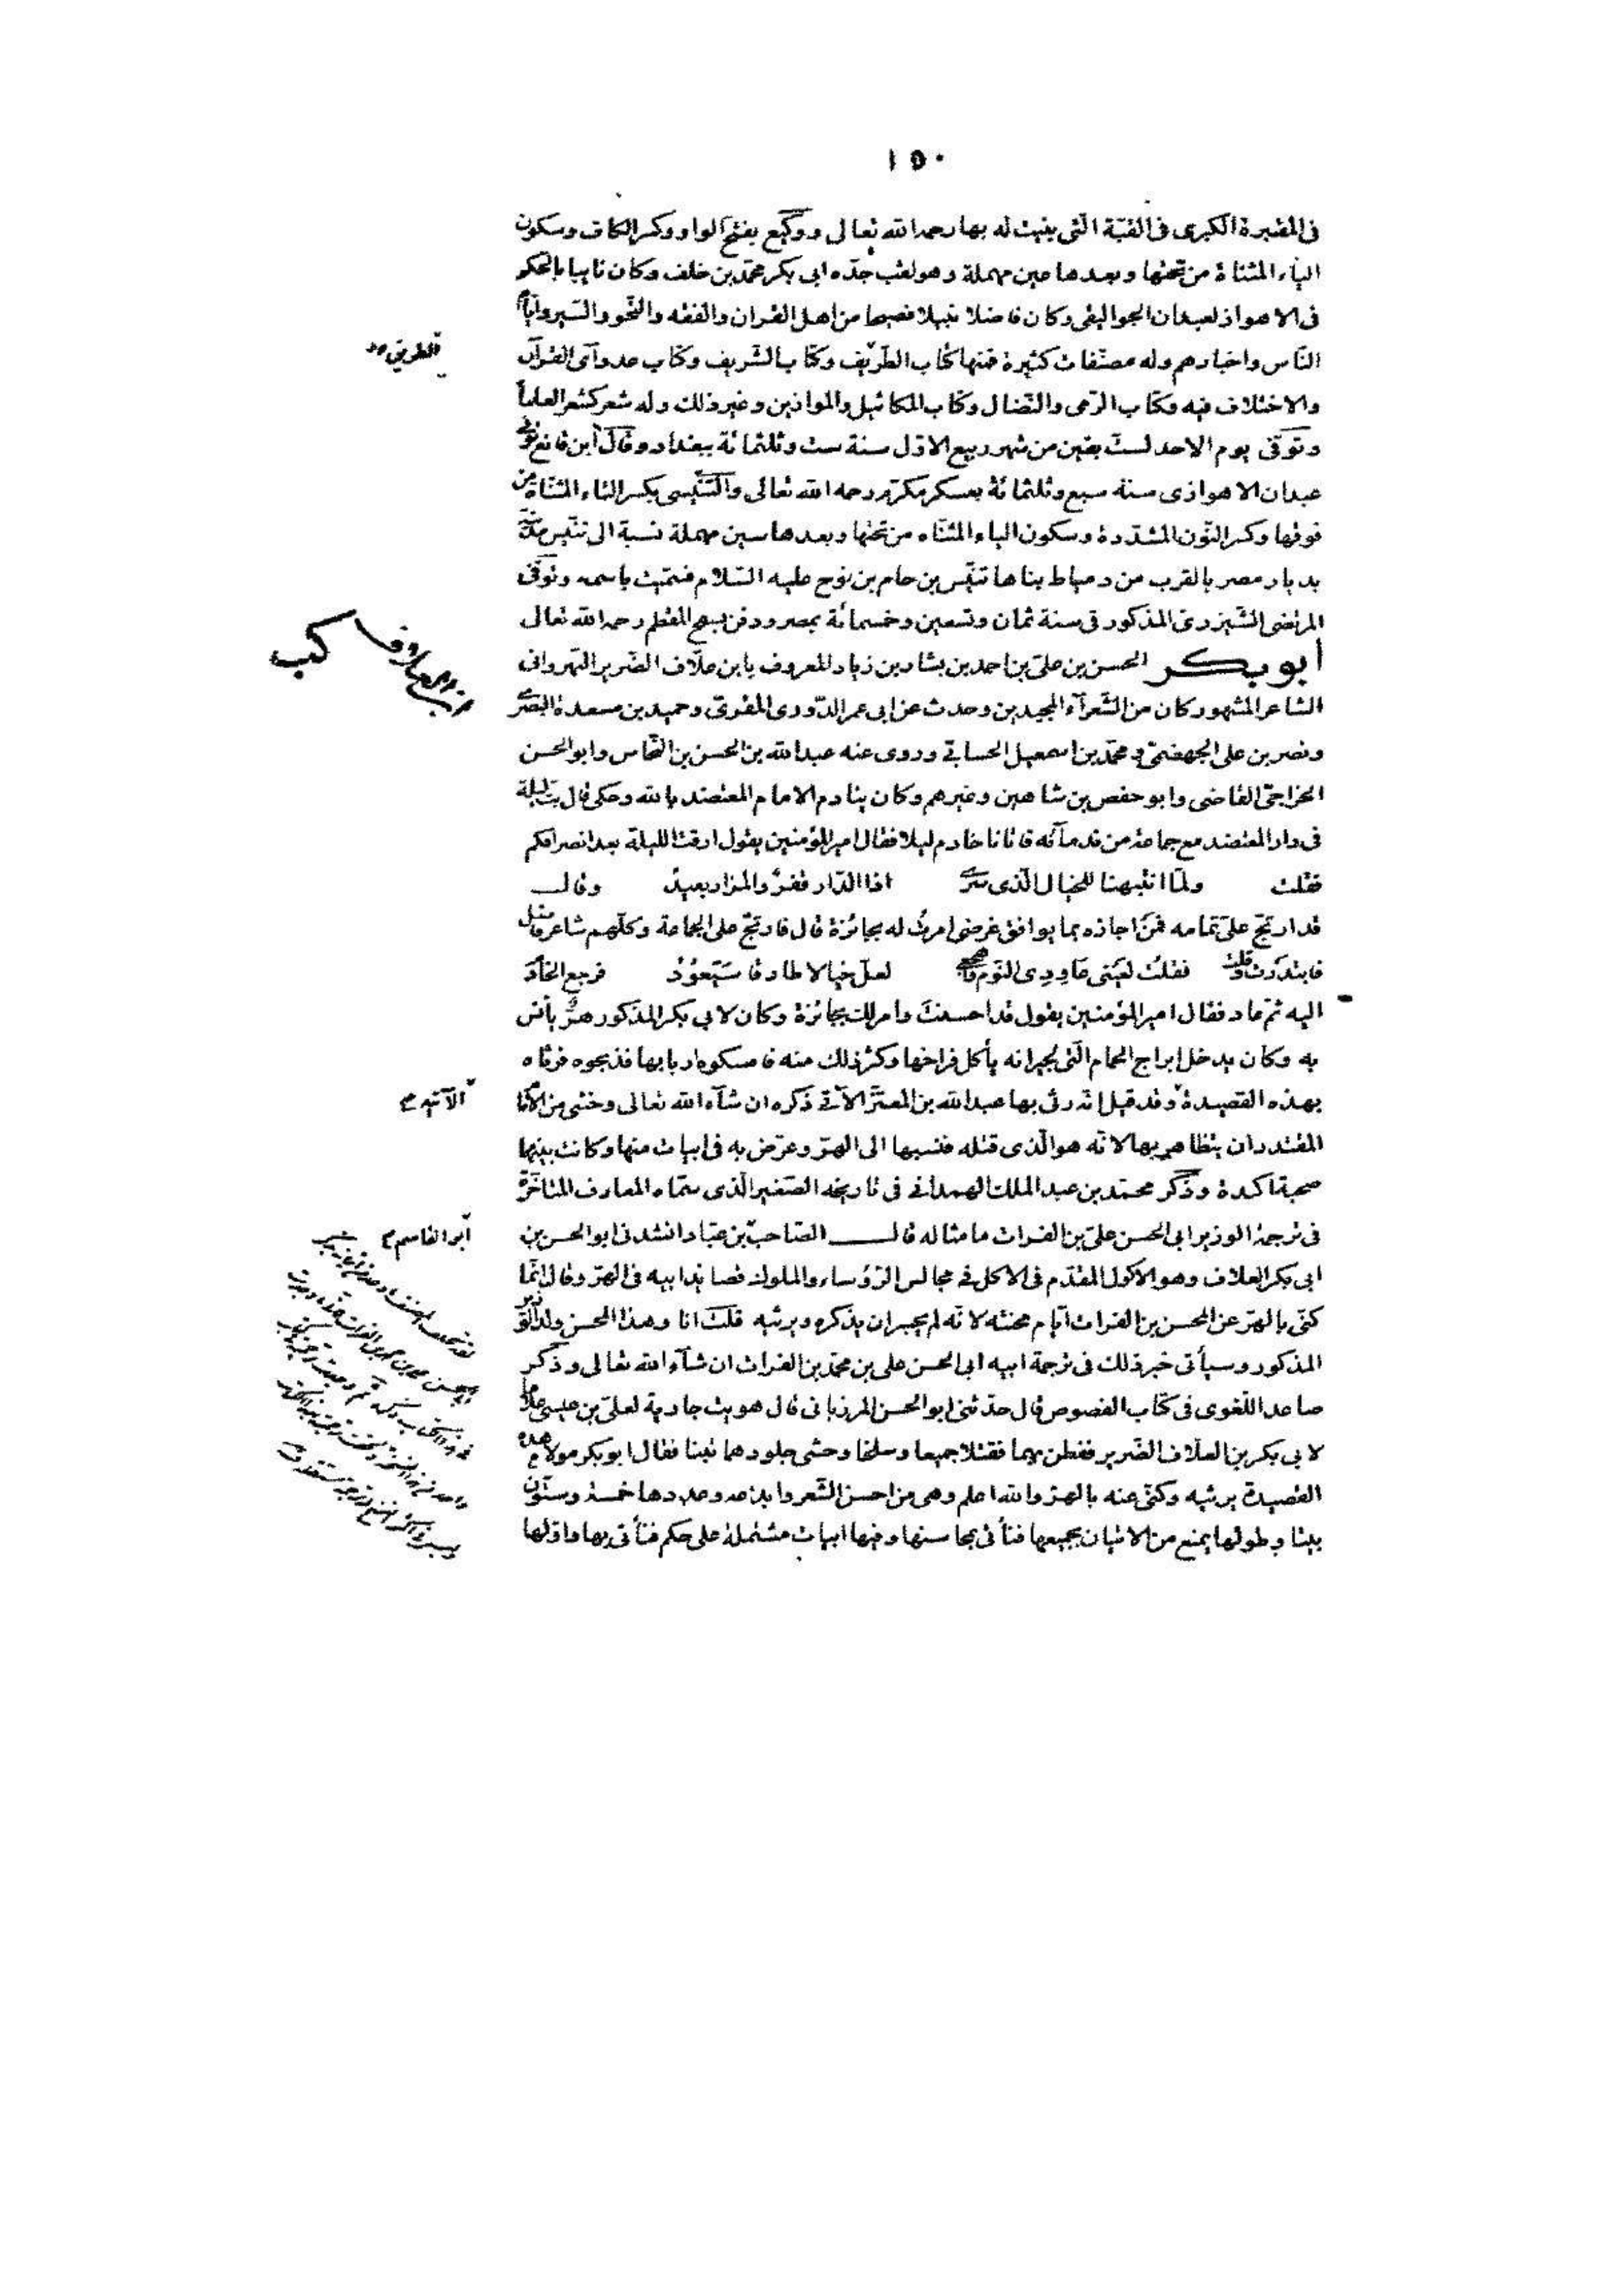 ١٥٠
فى المقبرة الكبرى فى القبّة الّتى بنيت له بها رحمه الله تعالى ووكيع بفتح الواو وكسر الكاف وسكون
الياء المثناة من تحتها وبعدها عين مهملة وهو لقب جدّه ابى بكر محمّد بن خلف وكان نايبا بالحكم
فى الاهواز لعبدان الجواليقى وكان فاضلا نبيلا فصيحا من اهل القران والفقه والنّحو والسّير وايّام
النّاس واخبارهم وله مصنّفات كثيرة فمنها كتاب الطّريف وكتاب الشّريف وكتاب عدد آى القرآن
والاختلاف فيه وكتاب الرّمى والنّضال وكتاب المكائيل والموازين وغير ذلك وله شعر كشعر العلماء
وتوفّى يوم الاحد لستّ بقين من شهر ربيع الاوّل سنة ست وثلثمائة ببغداد وقال ابن قانع توفى
عبدان الاهوازى سنة سبع وثلثمائة بعسكر مكرم رحمه الله تعالى والتّنّيسى بكسر التاء المثنّاة من
فوقها وكسر النّون المشدّدة وسكون الياء المثنّاه من تحتها وبعدها سين مهملة نسبة الى تنّيس مدينة
بديار مصر بالقرب من دمياط بناها تنّيس بن حام بن نوح عليه السّلام فسمّيت باسمه وتوفّى
المرتضى الشيزرى المذكور فى سنة ثمان وتسعين وخمسمائة بمصر ودفن بسفح المقطم رحمه الله تعالى
أبو بكر الحسن بن علىّ بن احمد بن بشار بن زياد المعروف بابن علّاف الضّرير النّهروانى
الشاعر المشهور كان من الشّعرآء المجيدين وحدث عن ابى عمر الدّورى المقرئ وحميد بن مسعدة البصرى
ونصر بن على الجهضمىّ ومحمّد بن اسمعيل الحسانى وروى عنه عبد الله بن الحسن بن النّحاس وابو الحسن
الخراجىّ القاضى وابو حفص بن شاهين وغيرهم وكان ينادم الامام المعتضد بالله وحكى قال بتّ ليلة
فى دار المعتضد مع جماعة من ندمآئه فاتانا خادم ليلا فقال امير المؤمنين يقول ارقت الليلة بعد انصرافكم
فقلت ولمّا انتبهنا للخيال الّذى سرى اذا الدّار قفرٌ والمزار بعيدُ وقال
قد ارتجّ علىّ تمامه فمن اجازه بما يوافق غرضى امرت له بجائزة قال فارتجّ على الجماعة وكلّهم شاعر فاضل
فابتدرت وقلت فقلت لعينى عاودى النّوم واهجعى لعلّ خيالا طارقا سيعودُ فرجع الخادم
اليه ثمّ عاد فقال امير المؤمنين يقول قد احسنت وامر لك بجائزة وكان لابى بكر المذكور هرّ يأنس
به وكان يدخل ابراج الحمام الّتى لجيرانه يأكل فراخها وكثر ذلك منه فامسكوه اربابها فذبحوه فرثاه
بهذه القصيدة وقد قيل انّه رثى بها عبد الله بن المعتزّ الآتى ذكره ان شآء الله تعالى وخشى من الامام
المقتدر ان يتظاهر بها لانّه هو الّذى قتله فنسبها الى الهرّ وعرّض به فى ابيات منها وكانت بينهما
صحبة اكيدة وذكر محمّد بن عبد الملك الهمدانى فى تاريخه الصّغير الّذى سمّاه المعارف المتأخّرة
فى ترجمة الوزير ابى الحسن علىّ بن الفرات ما مثاله قال الصّاحب بن عبّاد انشدنى ابو الحسن بن
ابى بكر العلاف وهو الاكول المقدّم فى الاكل فى مجالس الرّؤساء والملوك قصائد ابيه فى الهرّ وقال انّما
كنّى بالهرّ عن المحسن بن الفرات ايّام محنته لانّه لم يجسر ان يذكره ويرثيه قلت انا وهذا المحسن ولد الوزير
المذكور وسيأتى خبر ذلك فى ترجمة ابيه ابى الحسن على بن محمّد بن الفرات ان شآء الله تعالى وذكر
صاعد اللّغوى فى كتاب الفصوص قال حدّثنى ابو الحسن المرزبانى قال هويت جارية لعلىّ بن عيسى غلاما
لابى بكر بن العلّاف الضّرير ففطن بهما فقتلا جميعا وسلخا وحشى جلودهما تبنا فقال ابو بكر مولاه هذه
القصيدة يرثيه وكنّى عنه بالهرّ والله اعلم وهى من احسن الشّعر وابدعه وعددها خمسة وستّون
بيتا وطولها يمنع من الاتيان بجميعها فنأتى بمحاسنها وفيها ابيات مشتملة على حكم فنأتى بها واوّلها
الطريق
الآتيه
أبو القاسم